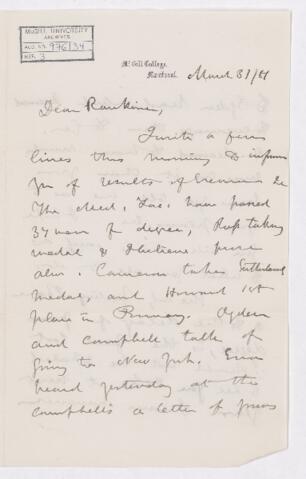 McGILL UNIVERSITY
ARCHIVES
ACC. NO. 976/34
REF. 3
McGill College,
Montreal.
March 31/81
Dear Rankine,
I write a few
lines this morning to inform
you of results of Exams &c
The Med. Fac. have passed
34 men for degree, Ross taking
medal &
also. Cameron takes Sutherland
medal, and Howard 1st
place in Primary. Ogden
and Campbell talk of
going to New York.
heard yesterday at the
Campbells a letter of yours